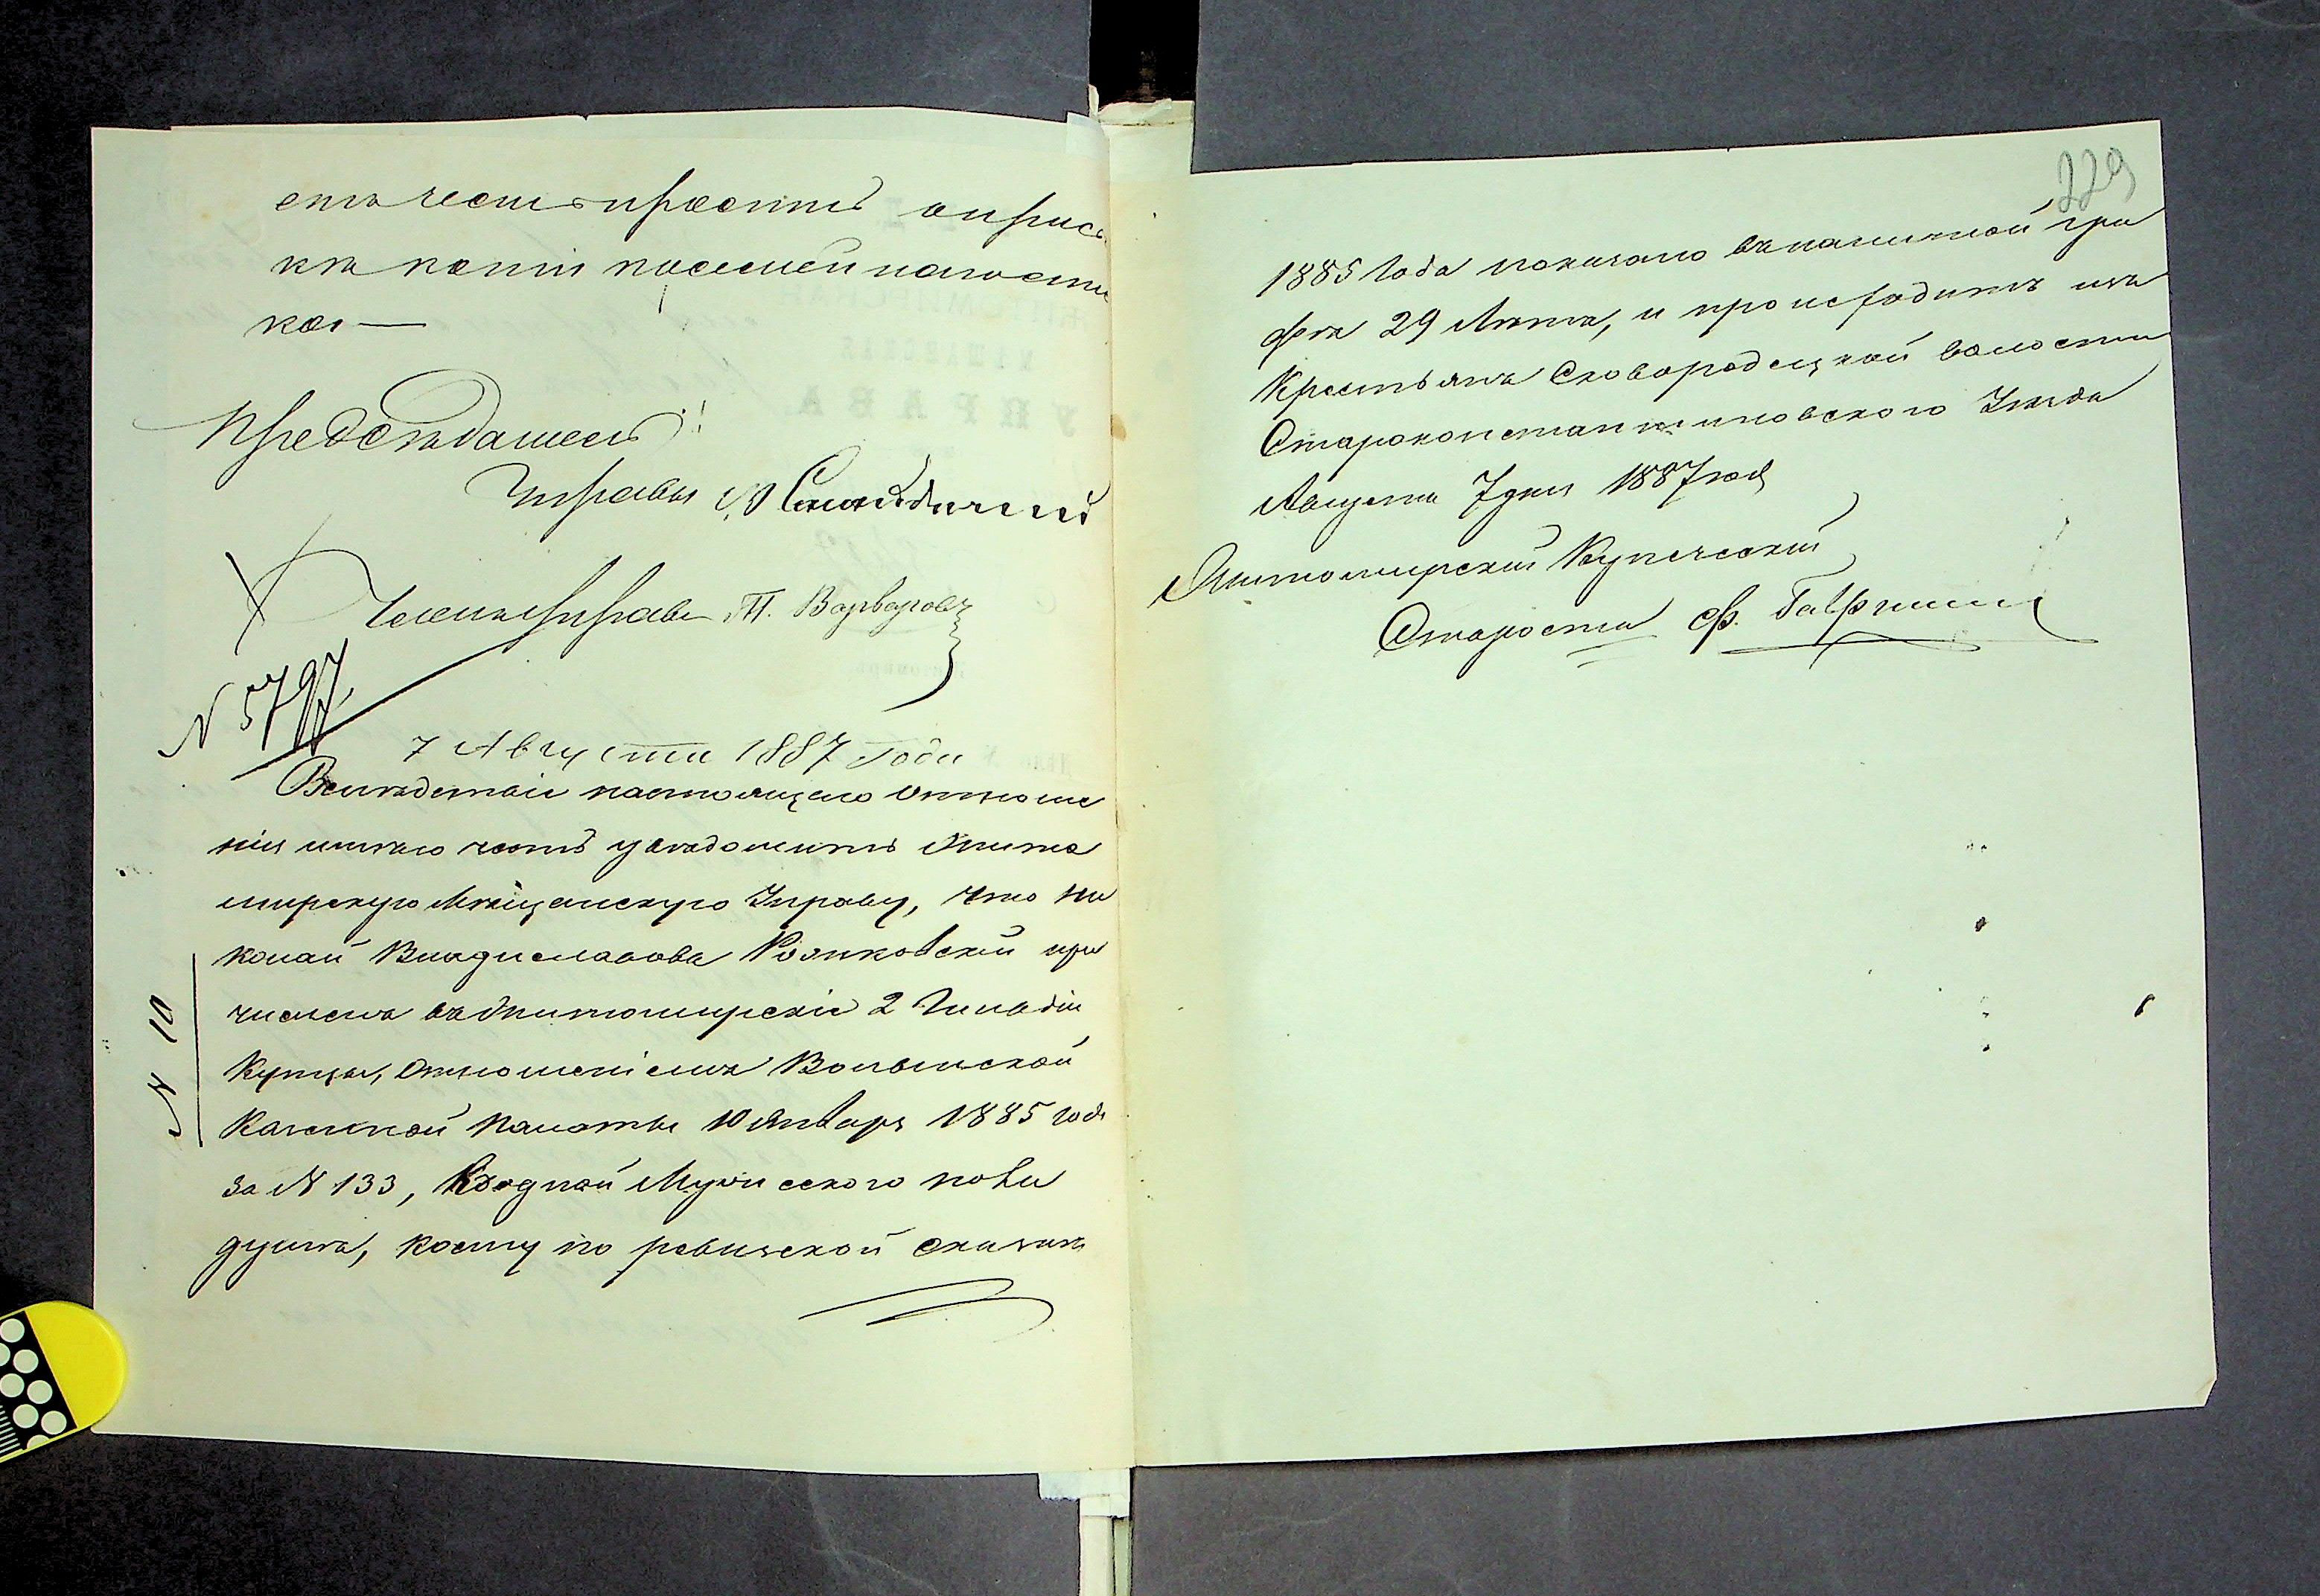 етъ честь просить о припис
къ
ко —
Предсѣдатель
Управы
Членъ Управы П. Варваровъ
N 5797.
7 Августа 1887 года
Вслѣдствіе настоящаго отноше
нія имѣю честь увѣдомить Жито
мирскую Мѣщанскую Управу, что Ни
колай Владиславовъ Рольковскій при
численъ въ Житомирскіе 2 Гильдіи
Купцы, отношеніемъ Волынской
Казенной Палаты 10 Января 1885 года
за N 133, въ одной Мужеского пола
душѣ, коему по ревизской сказкѣ
N 10
229
1885 года показано въ наличной гра
фѣ 29 Лѣтъ, и происходитъ изъ
Крестьянъ Сковородецкой волости
Староконстантиновского Уѣзда
Августа 7 дня 1887 года
Житомирскій Купеческій
Староста Ф.